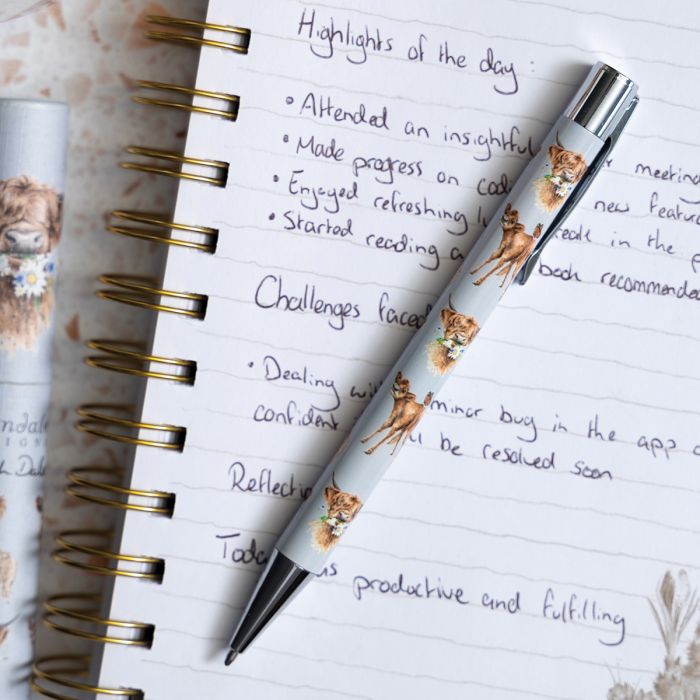 Highlights of the day :
• Attended an insightful meeting
• Made progress on codi new featur
• Enjoyed refreshing l eak in the p
• Started reading a book recommende
Challenges faced
• Dealing wi minor bug in the app
confident ll be resolved soon
Reflectio
Toda as productive and fulfilling